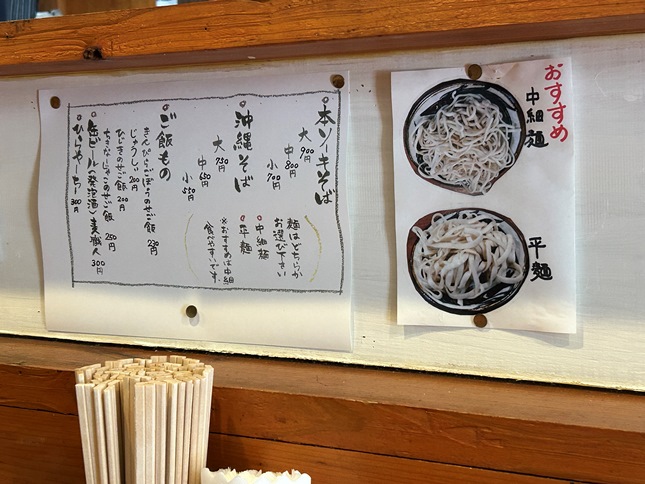 本ソーキそば
大 900円
中 800円
小 700円
沖縄そば
大 750円
中 650円
小 550円
麺はどちらか
お選び下さい
中細麺
平麺
※おすすめは中細
食べやすいです。
ご飯もの
きんぴらごぼうのせご飯 230円
じゅうしぃ 200円
ひじきのせご飯 200円
250円
缶ビール〈発泡酒〉麦職人 300円
ひらやーちー 300円
おすすめ
中細麺
平麺